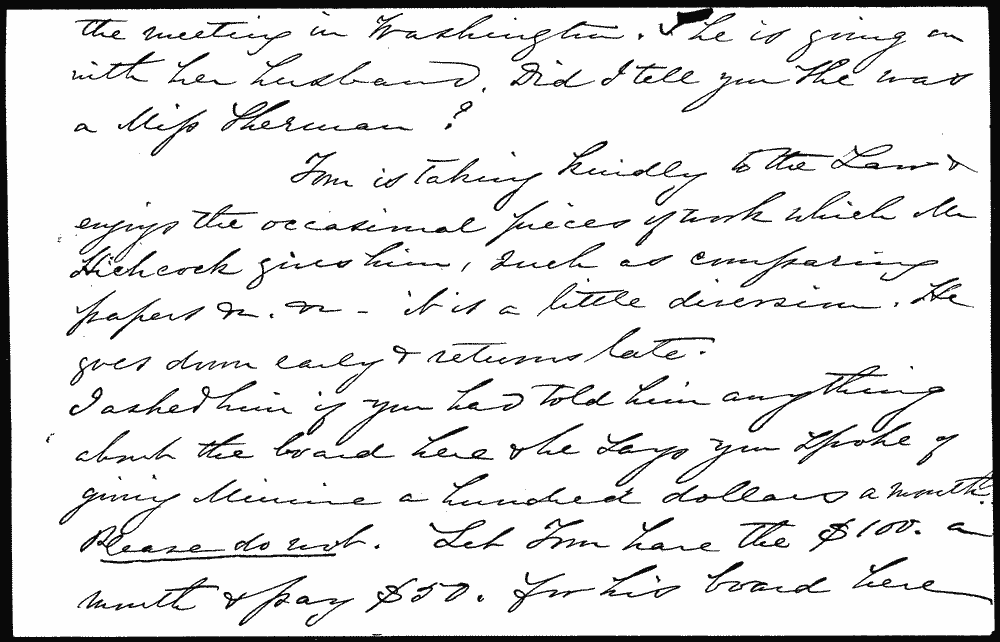 the meeting in Washington. She is going on
with her husband. Did I tell you she was
a Miss Sherman?
Tom is taking kindly to the Law &
enjoys the occasional pieces of work which Mr
Hichcock gives him, such as comparing
papers &c. &c - it is a little diversion. He
goes down early & returns late.
I asked him if you had told him anything
about the board here & he says you spoke of
giving Minnie a hundred dollars a month.
Please do not. Let Tom have the $100. a
month & pay $50. for his board here